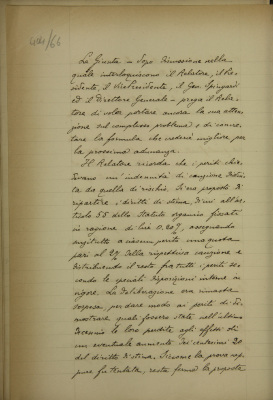 La Giunta in dopo discussione nella
quale interloquiscono il Relatore, il Pre-
sidente, il Vice Presidente, il Gen. Spingardi
ed il Direttore Generale - prega il Rela-
tore di voler portare ancora la sua atten-
zione sul complesso problema e di concre-
tare la formula che crederà migliore per
la prossima adunanza.
Il Relatore ricorda che i periti chie-
devano un'indennità di cauzione distin-
ta da quella di rischio. Si era proposto di
ripartire i diritti di stima, di cui all'ar-
ticolo 55 dello Statuto organico, fissati
in ragione di lire 0.20 %, assegnando
anzitutto a ciascun perito una quota
pari al 2% della rispettiva cauzione e
distribuendo il resto fra tutti i periti se-
condo le speciali disposizioni interne in
vigore. La deliberazione era rimasta
sospesa per dare modo ai periti di di-
mostrare quali fossero state nell'ultimo
decennio le loro perdite agli effetti di
un eventuale aumento dei centesimi 20
del diritto di stima. Siccome la prova nep-
pure fu tentata, resta ferma la proposta